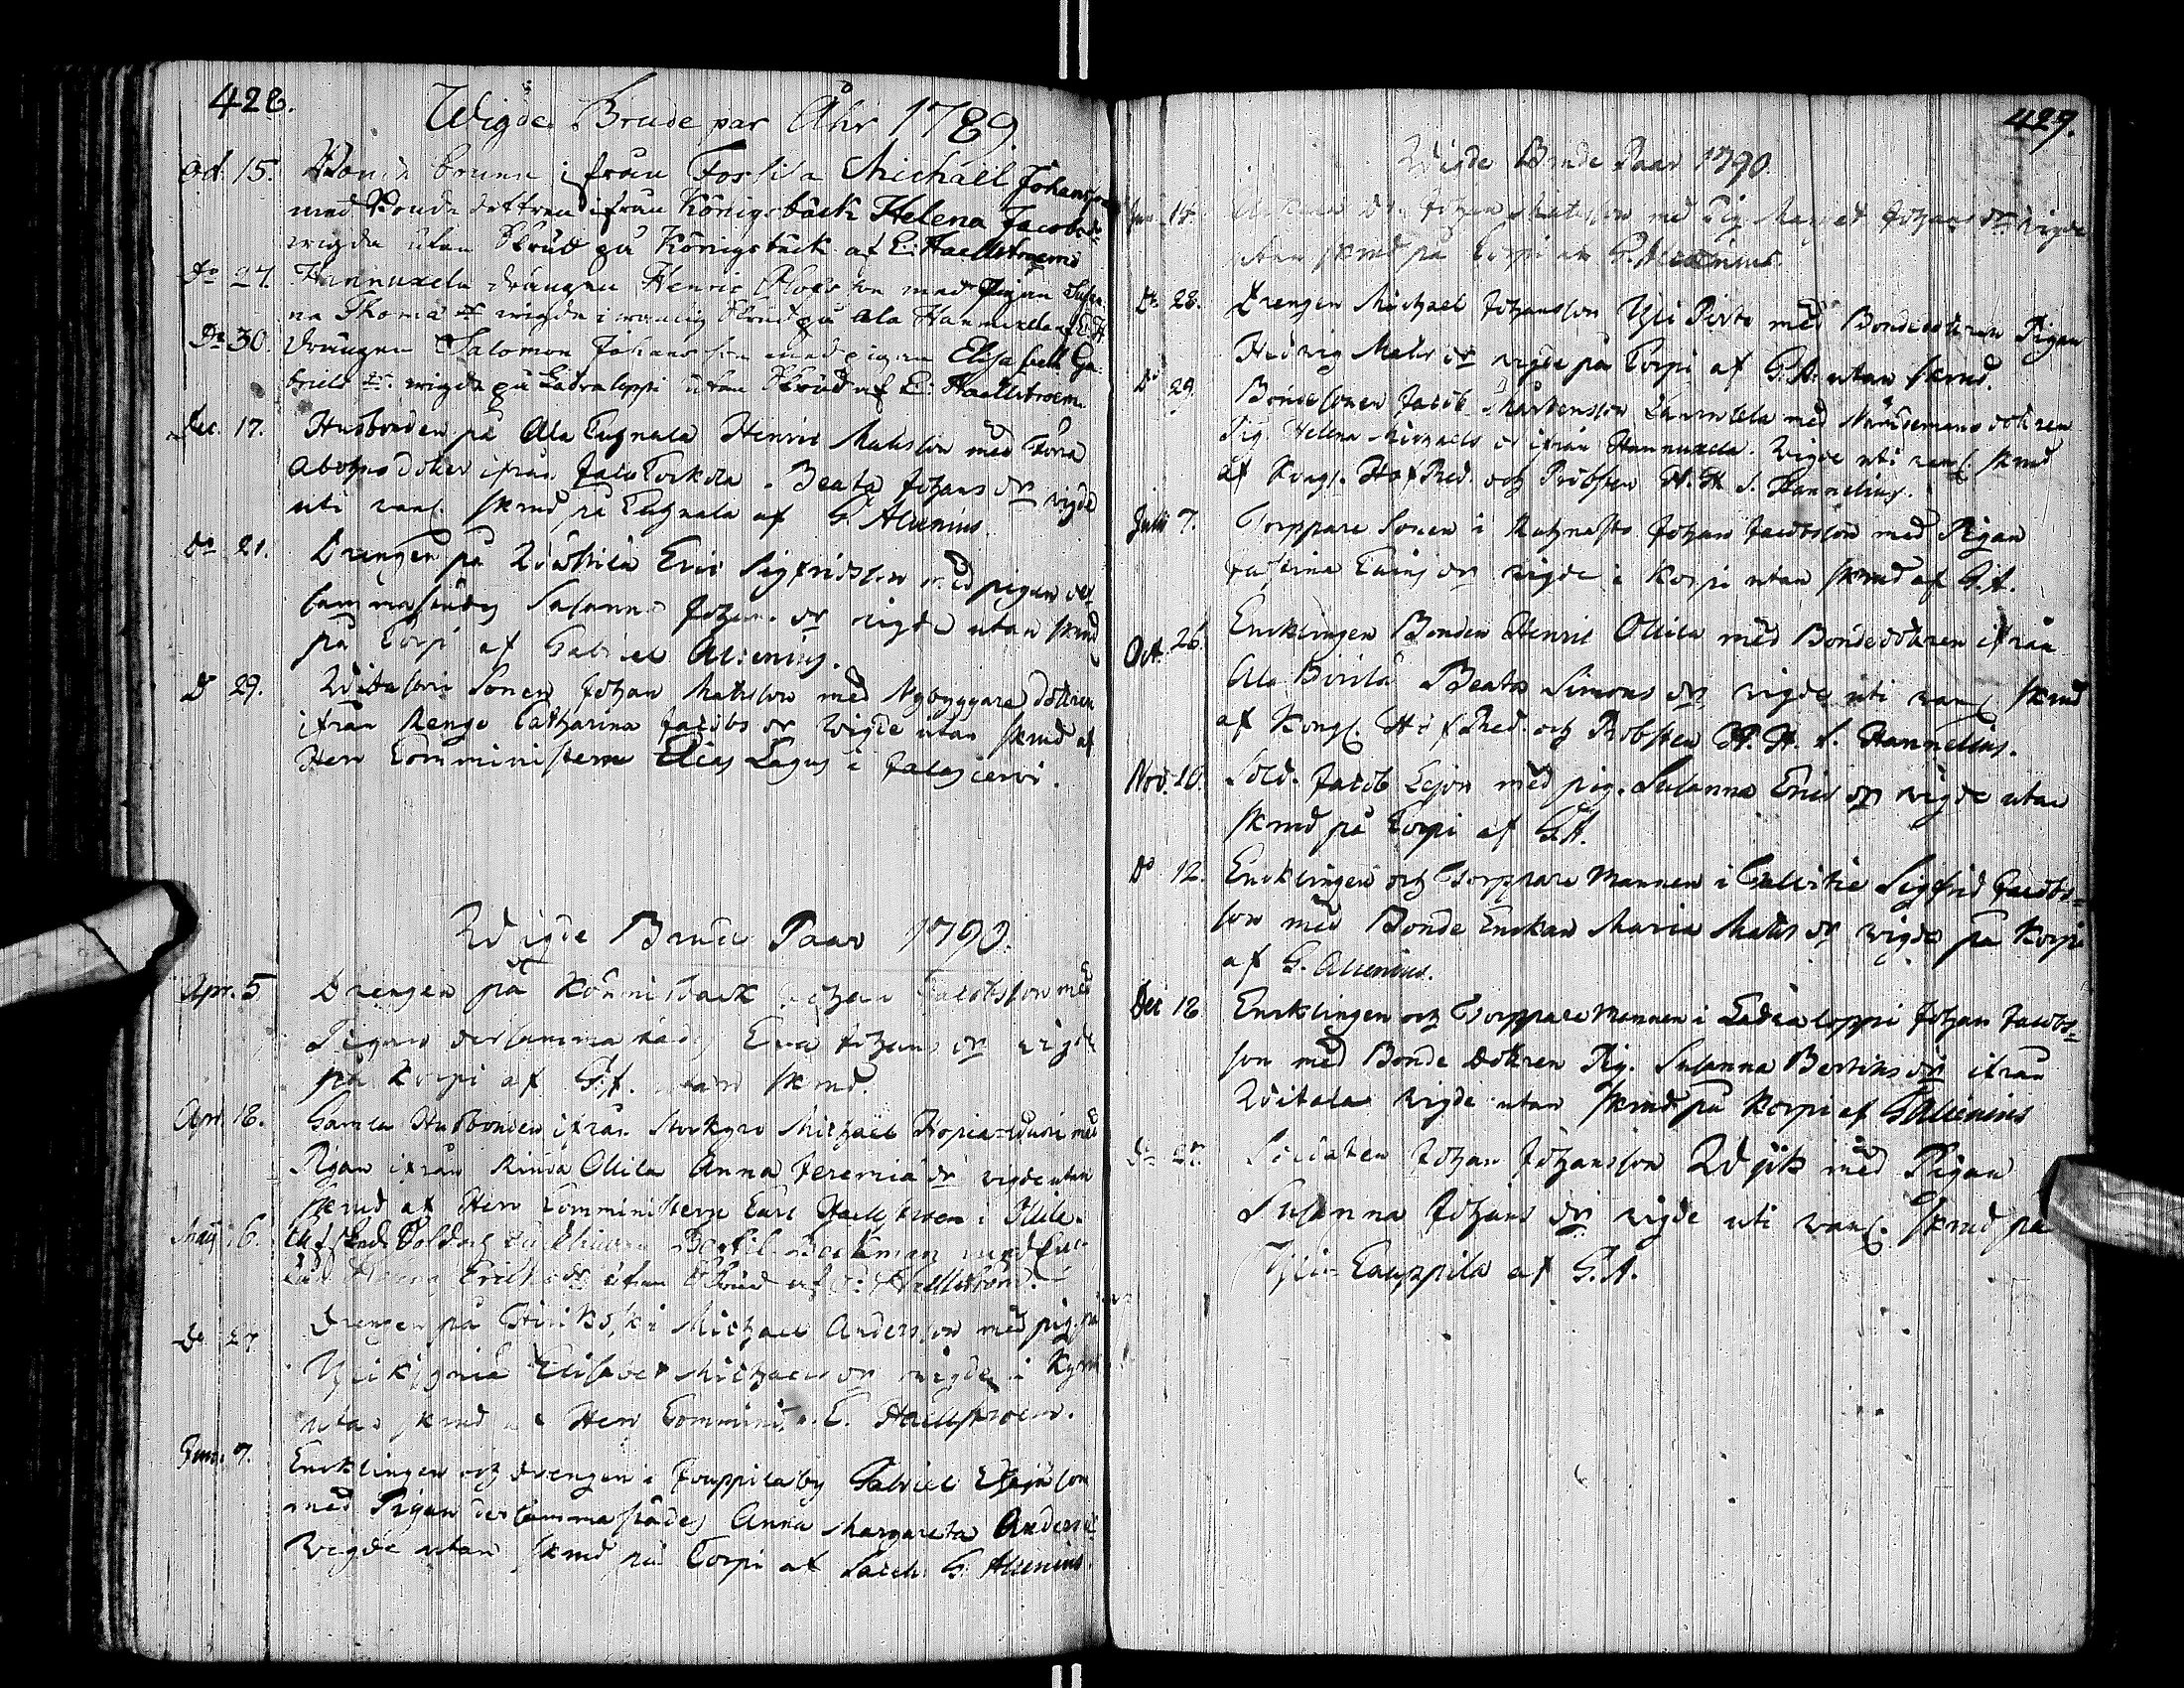 428.
Wigde Brude par Åhr 1789.
Oct. 15. Bonde Sonen ifrån Forsila Michaël Johansson
med Bonde dottren ifrån Königsbäck Helena Jacobs dr
wigda utan Skrud på Königsbäck af E: Haellstroem
Do 27. Hannuxela drängen Henric Olofsson med Pigan Susan
na Thomæ dr wigda i wanlig Skrud på Ala Hannuxela af E. H.
Do 30 drängen Salomon Johansson med pigan Elisabeth Ga-
briels dr. wigda på Ladraloppi utan Skrud af E: Haellstroem.
Dec. 17. Husbonden på Ala Tugnala Henric Matsson med förra
Åboens doter ifrån Jala Torkola Beata Johans dr wigde
uti vanl. skrud på Tugnala af G. Alcenius.
Do 21. Drengen på Eric Sigfridsson med pigan der
sammastädes Susanna Johans dr wigde utan skrud
på Corpi af Gabriel Alcenius.
D 29. Sonen Johan Matsson med Nybyggare dottren
ifrån Rengo Catharina Jacobs dr Wigde utan skrud af
Herr Comministern Elias Lagus i Jalasjervi.
Wigde Brude Paar 1790.
Apr. 5 Drengen på Könnisback Johan Jacobsson med
Pigan dersammastädes Eva Johans dr wigde
på Korpi af G: A. utan skrud.
Apr. 18. Gamla Husbonden ifrån Storkyro Michaël med
Pigan ifrån Ollila Anna Jeremiæ dr wigde utan
skrud af Herr Comministern Earl Haellstroem i Ollila.
Maij 16. Afsked. Sold. och Bertil Backman med
Erichs dr utan Skrud af E: Haellstroem.
Do 27 Drengen på Michael Andersson med pig. på
Elisabet Michaels dr wigde i Kyrkan
utan skrud af Herr Commini. E. Haellstroem.
Jun. 7. Encklingen och drengen i Jouppilaby Gabriel Esajæson
med Pigan dersammastädes Anna Margareta Anders dr
Wigde utan skrud på Corpi af Sacell. G. Alcenius.
429.
Wigde Brude Paar 1790.
Jun. 18. Johan Matsson med Pig. Margaret Johans dr Wigde
utan skrud på Corpi af G. Alcenius.
Do 28. Drengen Michael Johansson Yli Pirto med Bondedottren Pigan
Hedvig Mats dr wigde på Corpi af G: A. utan skrud.
Do 29. Bondesonen Jacob Mårtensson med Nämdemans dottren
Pig. Helena Michaels dr ifrån Hannuxela. Wigde uti vanl. skrud
af Kongl. Hof Pred. och Probsten H. H. S. Hannelius.
Julii 7. Torppare Sonen i Johan Jacobsson med Pigan
dr wigde i Korpi utan skrud af G. A.
Oct. 26. Encklingen Bonden Henric Ollila med Bondedottren ifrån
Ala Beata Simons dr wigde uti vanl. skrud
af Kongl. Hof Pred. och Probsten H. H. S. Hannelius.
Nov. 10. Sold. Jacob Lejon med pig. Susanna Erics dr wigde utan
skrud på Corpi af G: A.
Do 12. Encklingen och Torppare Mannen i Sigfrid Jacobs=
son med Bonde Enckan Maria Mats dr wigde på Korpi
af G. Alcenius.
Dec 12 Encklingen och Torppare Mannen i Ladraloppi Johan Jacobs=
son med Bonde Dottren Pig. Susanna Bertils dr ifrån
Witala wigde utan skrud på Korpi af G Alcenius
Do 27. Soldaten Johan Johansson med Pigan
Susanna Johans dr wigde uti vanl. skrud på
Yli-Cauppila af G. A.